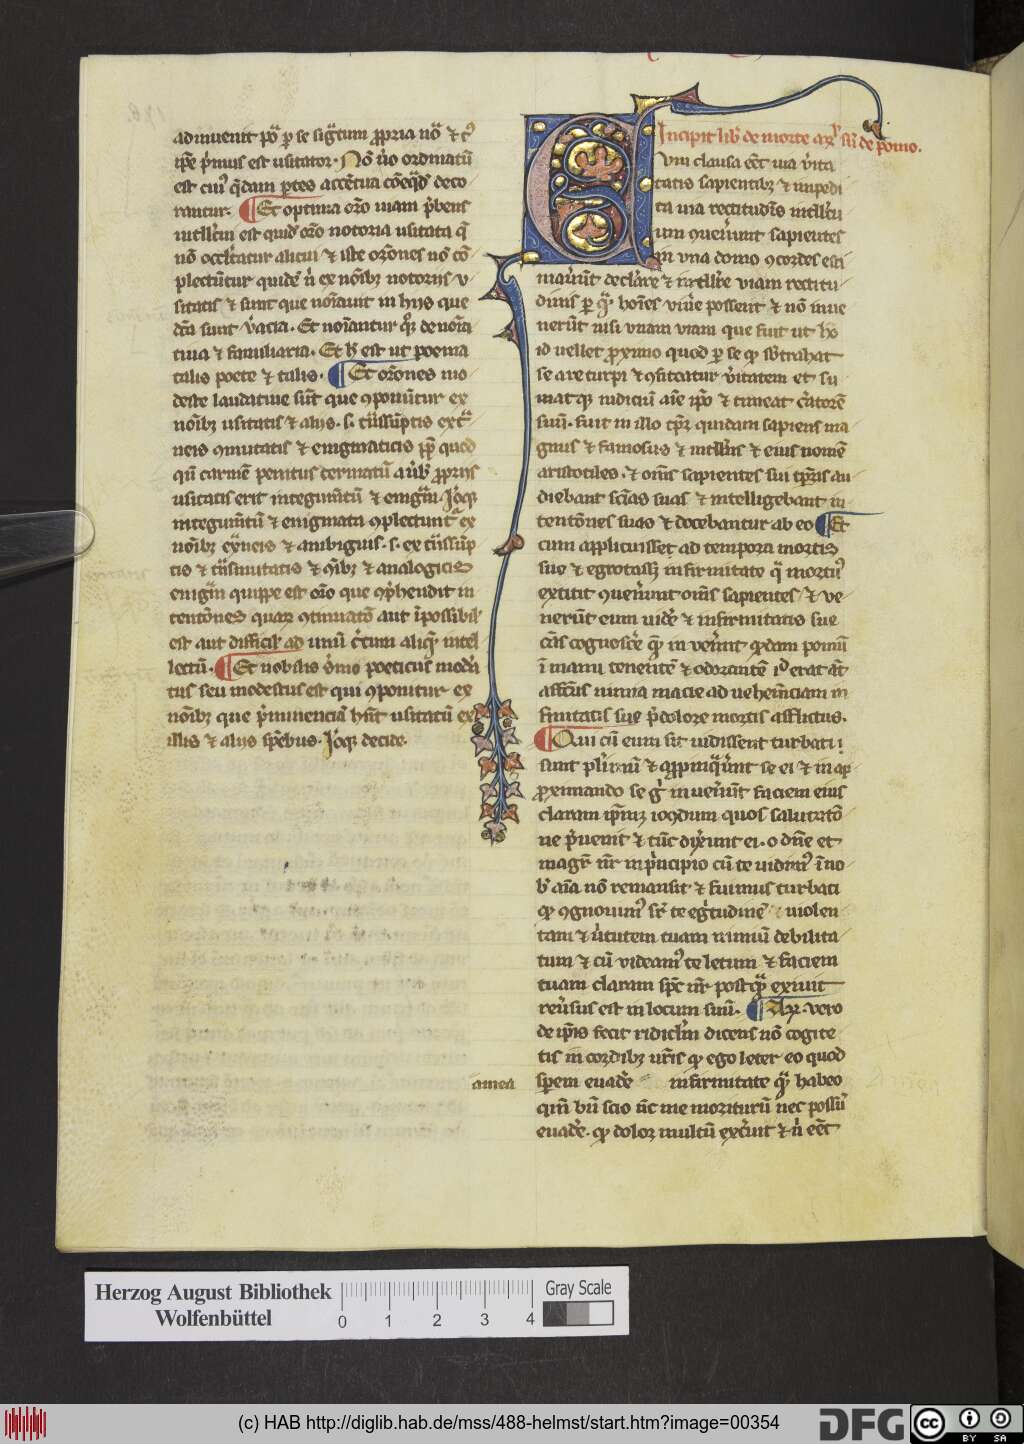 adinuenit pō p se sigͫtum ꝓpria nō ⁊ t͛
ip̄e p̄mus est usitator. Nō ūo ordinatū
est cui͛ q̄dam ꝑtes accētua cōeq̄d deco
rantur. ¶ Et optima oro niam p̄bens
intllc̄m est quid orō notoria usitata q̄
nō occl̄tatur alicui ⁊ iste orōnes nō cō
plectūtur quidē n̄ ex noībꝫ notoriis v
sitatis ⁊ sunt que noīauit in hijs que
dc̄a sunt v̄acia. Et noīantur
tiua ⁊ familiaria. Et h̄ est ut poema
talis poete ⁊ talis. ¶ Et orōnes mo
deste laudatiue sūt que ꝯponūtur ex
noībꝫ usitatis ⁊ aliis. s. tn̄ssūptis ext̄
neis ꝯmutatis ⁊ enigmaticis ꝓp̄ quod
qn̄ carmē penitus termatū a ūbꝫ ꝓpriis
usitatis erit integumtū ⁊ enigm̄. Ioqꝫ
integumtū ⁊ enigmata ꝯplectunt͛ ex
noībꝫ ext̄neis ⁊ ambiguis. s. ex tn̄ssūp
tis ⁊ tn̄smutatis ⁊ ⁊ analogicis
enigm̄ quippe est orō que ꝯp̄hendit in
tentōnes quaꝝ ꝯtinuatō aut īpossibil͛
est aut difficil͛ ad unū c̄tum aliqꝫ intel
lectū. ¶ Et nobilis s̄mo poeticus mod̄a
tus seu modestus est qui ꝯponitur ex
noībꝫ que p̄minenciā hn̄t usitatū ex
illis ⁊ aliis spēbus. Ioqꝫ decide.
Incipit lib̄ de morte arꝫ siue de pomo.
Cum clausa eēt uia v̄ita
tatis sapientibꝫ ⁊ impedi
ta uia rectitudīs intllc̄tu
um ꝯuen̄unt sapientes
in vna domo ꝯcordes esti
mauūnt declāre ⁊ intllr̄e viam rectitu
dinis ꝑ q̄ hoīes viūe possent ⁊ nō inue
nerūt nisi vnam viam que fuit ut ho
id uellet ꝓximo quod ꝑ se ꝙ sb̄trahat
se a re turpi ⁊ ꝯfiteatur v̄itatem et su
mat qꝫ iudiciū aīe ip̄o ⁊ timeat c̄atorē
suū. fuit in illo tp̄r quidam sapiens ma
gnus ⁊ famosus ⁊ intllīs ⁊ eius nomē
aristotiles. ⁊ om̄s sapientes sui tp̄ris au
diebant scīas suas ⁊ intelligebant in
tentōnes suas ⁊ docebantur ab eo ¶ Et
cum applicuisset ad tempora mortis
sue ⁊ egrotassꝫ infirmitate q̄ mortu͛
extitit ꝯuen̄unt om̄s sapientes ⁊ ve
nerūt eum uidē ⁊ infirmitatis sue
cās cognoscē q̄m in ven̄nt qdam pomū
ī manu tenentē ⁊ odorantē ip̄e erat āt
afflc̄us nimia macie ad uehemc̄iam in
firmitatis sue p̄ dolore mortis afflictus.
¶ Qui cū eum sic uidissent turbati
sunt plimū ⁊ appinq̄ūnt se ei ⁊ in ap
ꝓximando se ḡ inuen̄ūt faciem eius
claram ip̄mqꝫ iocūdum quos salutatō
ne p̄uenit ⁊ tūc dix̄unt ei. o dn̄e et
magr̄ nr̄ in p̄ncipio cū te uidim͛ ī no
b̄ aīa nō remansit ⁊ fuimus turbati
ꝙ ꝯgnouim͛ sr̄ te eḡtudinē uiolen
tam ⁊ ūtutem tuam nimiū debilita
tum ⁊ cū videam͛ te letum ⁊ faciem
tuam claram spc̄ nr̄ postꝙ exiuit
reūsus est in locum suū. ¶ Arꝫ. vero
de ip̄is fecit ridicl̄m dicens nō cogite
tis in cordibꝫ ur̄is ꝙ ego leter eo quod
amea
sperem euadē infirmitate q̄ habeo
qm̄ bn̄ scio nc̄ me moriturū nec possū
euadē. ꝙ dolor multū exc̄uit ⁊ n̄ eēt
Herzog August Bibliothek
Wolfenbüttel
0 1 2 3 4
Gray Scale
(c) HAB http://diglib.hab.de/mss/488-helmst/start.htm?image=00354
DFG
cc BY SA